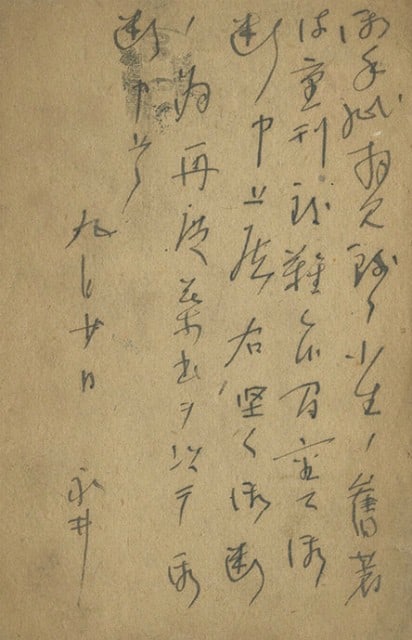 御手紙拝見致候小生ノ舊著
は重刊致難く候間重て御
断申上候右堅く御断
ノ為再度葉書ヲ以テ御
断申上候
九月廿日 永井